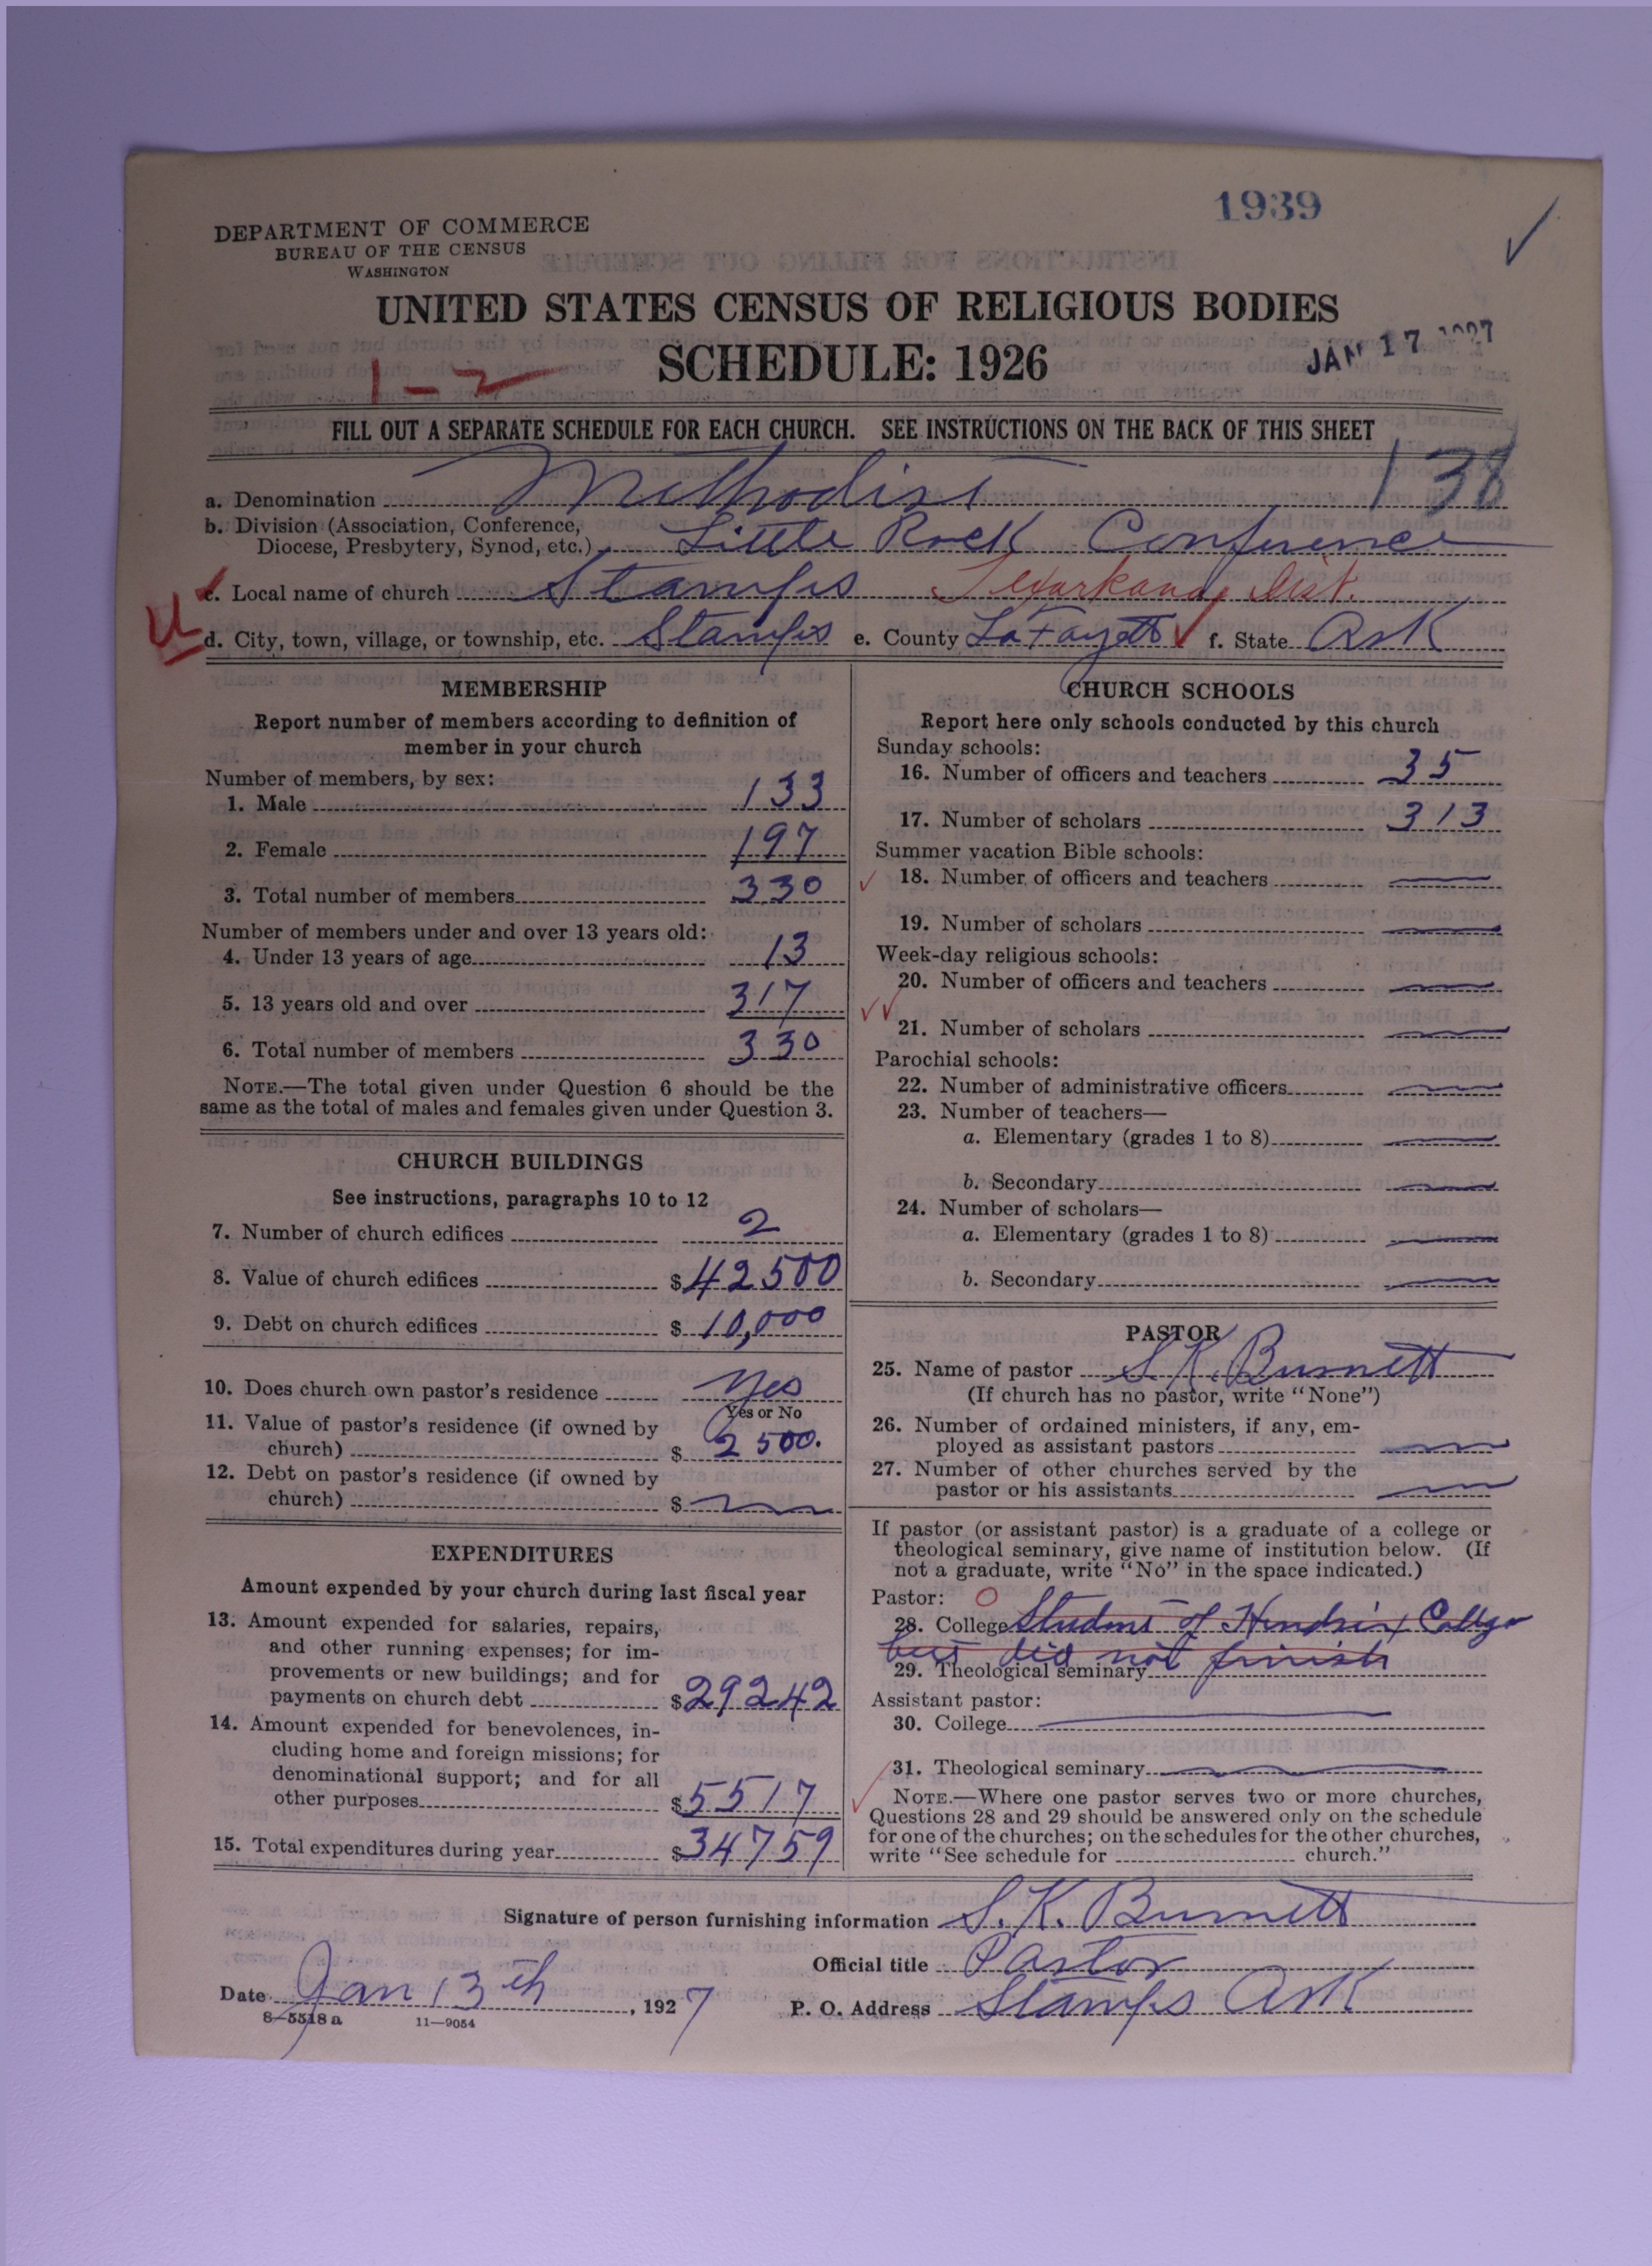 1939
DEPARTMENT OF COMMERCE
BUREAU OF THE CENSUS
WASHINGTON
UNITED STATES CENSUS OF RELIGIOUS BODIES
SCHEDULE: 1926
JAN 17 1927
1-2
FILL OUT A SEPARATE SCHEDULE FOR EACH CHURCH. SEE INSTRUCTIONS ON THE BACK OF THIS SHEET
138
a. Denomination Methodist
b. Division (Association, Conference,
Diocese, Presbytery, Synod, etc.) Little Rock Conference
c. Local name of church Stamps Texarkana Dist.
U
d. City, town, village, or township, etc. Stamps e. County LaFayette f. State Ark
MEMBERSHIP
Report number of members according to definition of
member in your church
Number of members, by sex:
1. Male 133
2. Female 197
3. Total number of members 330
Number of members under and over 13 years old:
4. Under 13 years of age 13
5. 13 years old and over 317
6. Total number of members 330
NOTE.—The total given under Question 6 should be the
same as the total of males and females given under Question 3.
CHURCH BUILDINGS
See instructions, paragraphs 10 to 12
7. Number of church edifices 2
8. Value of church edifices $42500
9. Debt on church edifices $10,000
10. Does church own pastor's residence Yes
Yes or No
11. Value of pastor's residence (if owned by
church) $2500.
12. Debt on pastor's residence (if owned by
church) $
EXPENDITURES
Amount expended by your church during last fiscal year
13. Amount expended for salaries, repairs,
and other running expenses; for im-
provements or new buildings; and for
payments on church debt $29242
14. Amount expended for benevolences, in-
cluding home and foreign missions; for
denominational support; and for all
other purposes $5517
15. Total expenditures during year $34759
CHURCH SCHOOLS
Report here only schools conducted by this church
Sunday schools:
16. Number of officers and teachers 35
17. Number of scholars 313
Summer vacation Bible schools:
18. Number of officers and teachers
19. Number of scholars
Week-day religious schools:
20. Number of officers and teachers
21. Number of scholars
Parochial schools:
22. Number of administrative officers
23. Number of teachers—
a. Elementary (grades 1 to 8)
b. Secondary
24. Number of scholars—
a. Elementary (grades 1 to 8)
b. Secondary
PASTOR
25. Name of pastor S.K. Burnett
(If church has no pastor, write "None")
26. Number of ordained ministers, if any, em-
ployed as assistant pastors
27. Number of other churches served by the
pastor or his assistants
If pastor (or assistant pastor) is a graduate of a college or
theological seminary, give name of institution below. (If
not a graduate, write "No" in the space indicated.)
Pastor: O
28. College Student of Hendrix College
but did not finish
29. Theological seminary
Assistant pastor:
30. College
31. Theological seminary
NOTE.—Where one pastor serves two or more churches,
Questions 28 and 29 should be answered only on the schedule
for one of the churches; on the schedules for the other churches,
write "See schedule for church."
Signature of person furnishing information S. K. Burnett
Official title Pastor
Date Jan 13th, 1927 P. O. Address Stamps Ark
8-5518 a 11-9054